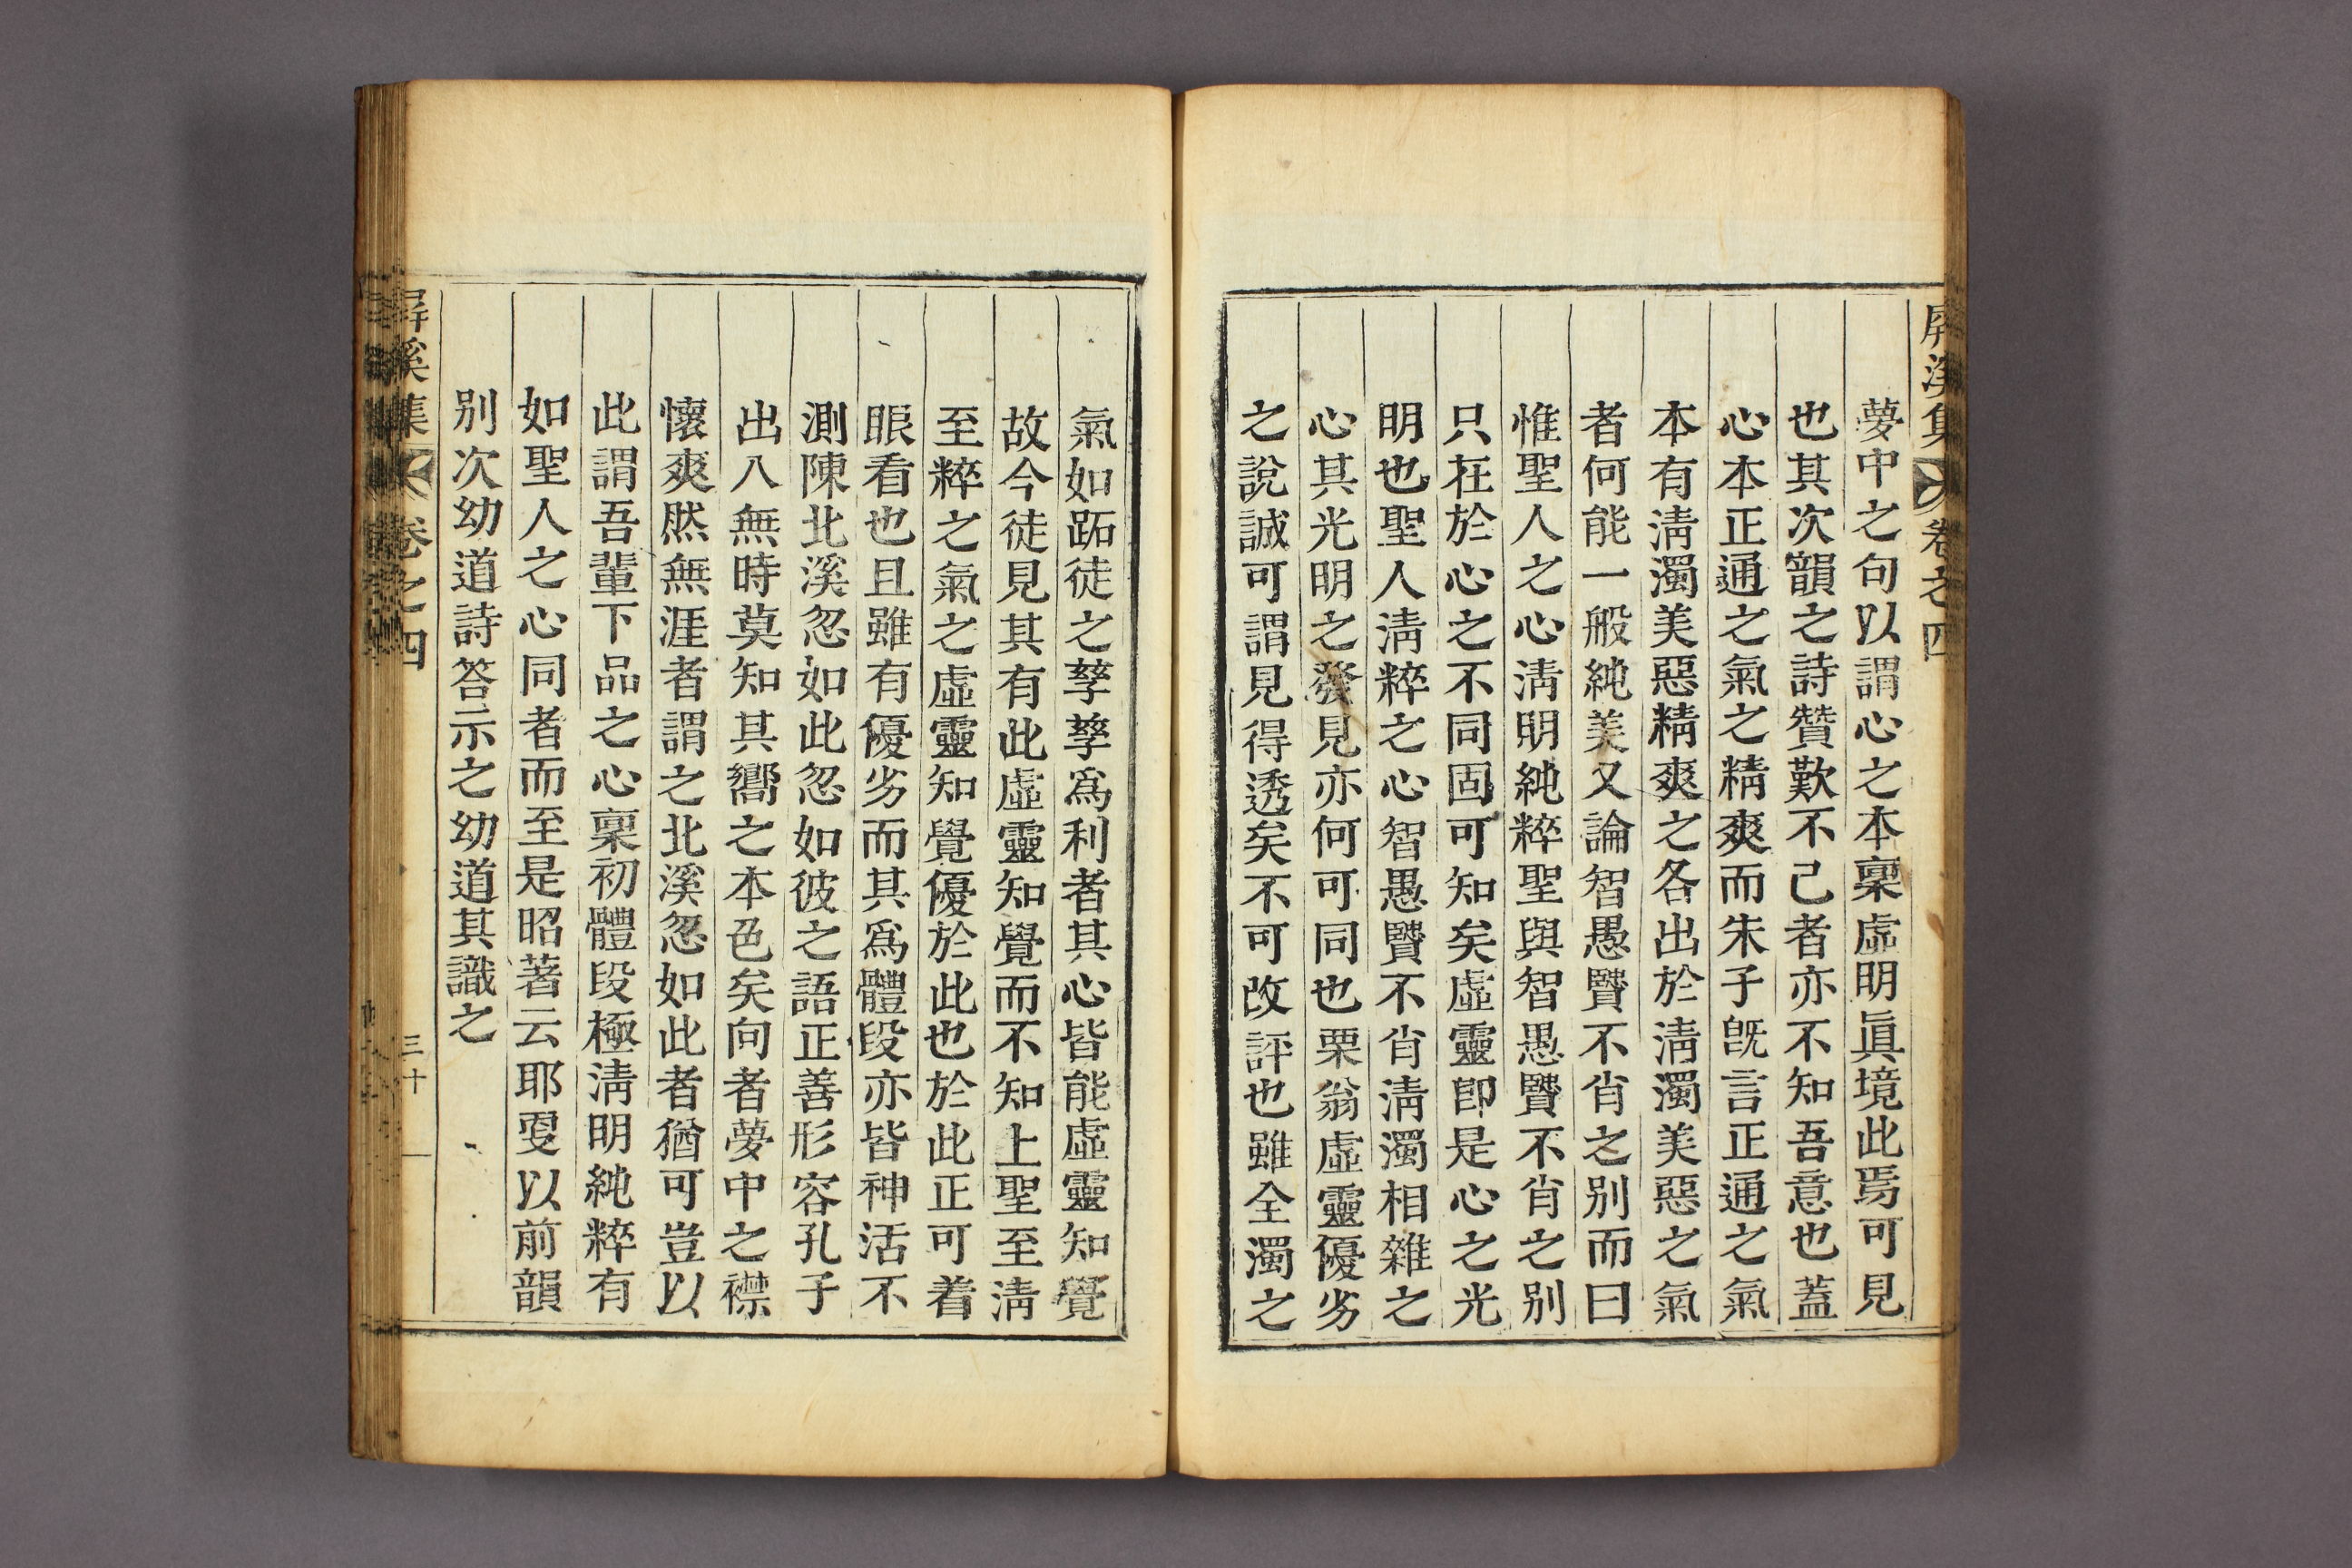 屛溪集 卷之四
夢中之句以謂心之本稟虛明眞境此焉可見
也其次韻之詩贊歎不已者亦不知吾意也蓋
心本正通之氣之精爽而朱子旣言正通之氣
本有淸濁美惡精爽之各出於淸濁美惡之氣
者何能一般純美又論智愚賢不肖之別而曰
惟聖人之心淸明純粹聖與智愚賢不肖之別
只在於心之不同固可知矣虛靈卽是心之光
明也聖人淸粹之心智愚賢不肖淸濁相雜之
心其光明之發見亦何可同也栗翁虛靈優劣
之說誠可謂見得透矣不可改評也雖全濁之
氣如跖徒之孳孳爲利者其心皆能虛靈知覺
故今徒見其有此虛靈知覺而不知上聖至淸
至粹之氣之虛靈知覺優於此也於此正可着
眼看也且雖有優劣而其爲體段亦皆神活不
測陳北溪忽如此忽如彼之語正善形容孔子
出入無時莫知其嚮之本色矣向者夢中之襟
懷爽然無涯者謂之北溪忽如此者猶可豈以
此謂吾輩下品之心稟初體段極淸明純粹有
如聖人之心同者而至是昭著云耶更以前韻
別次幼道詩答示之幼道其識之
屛溪集 卷之四 三十